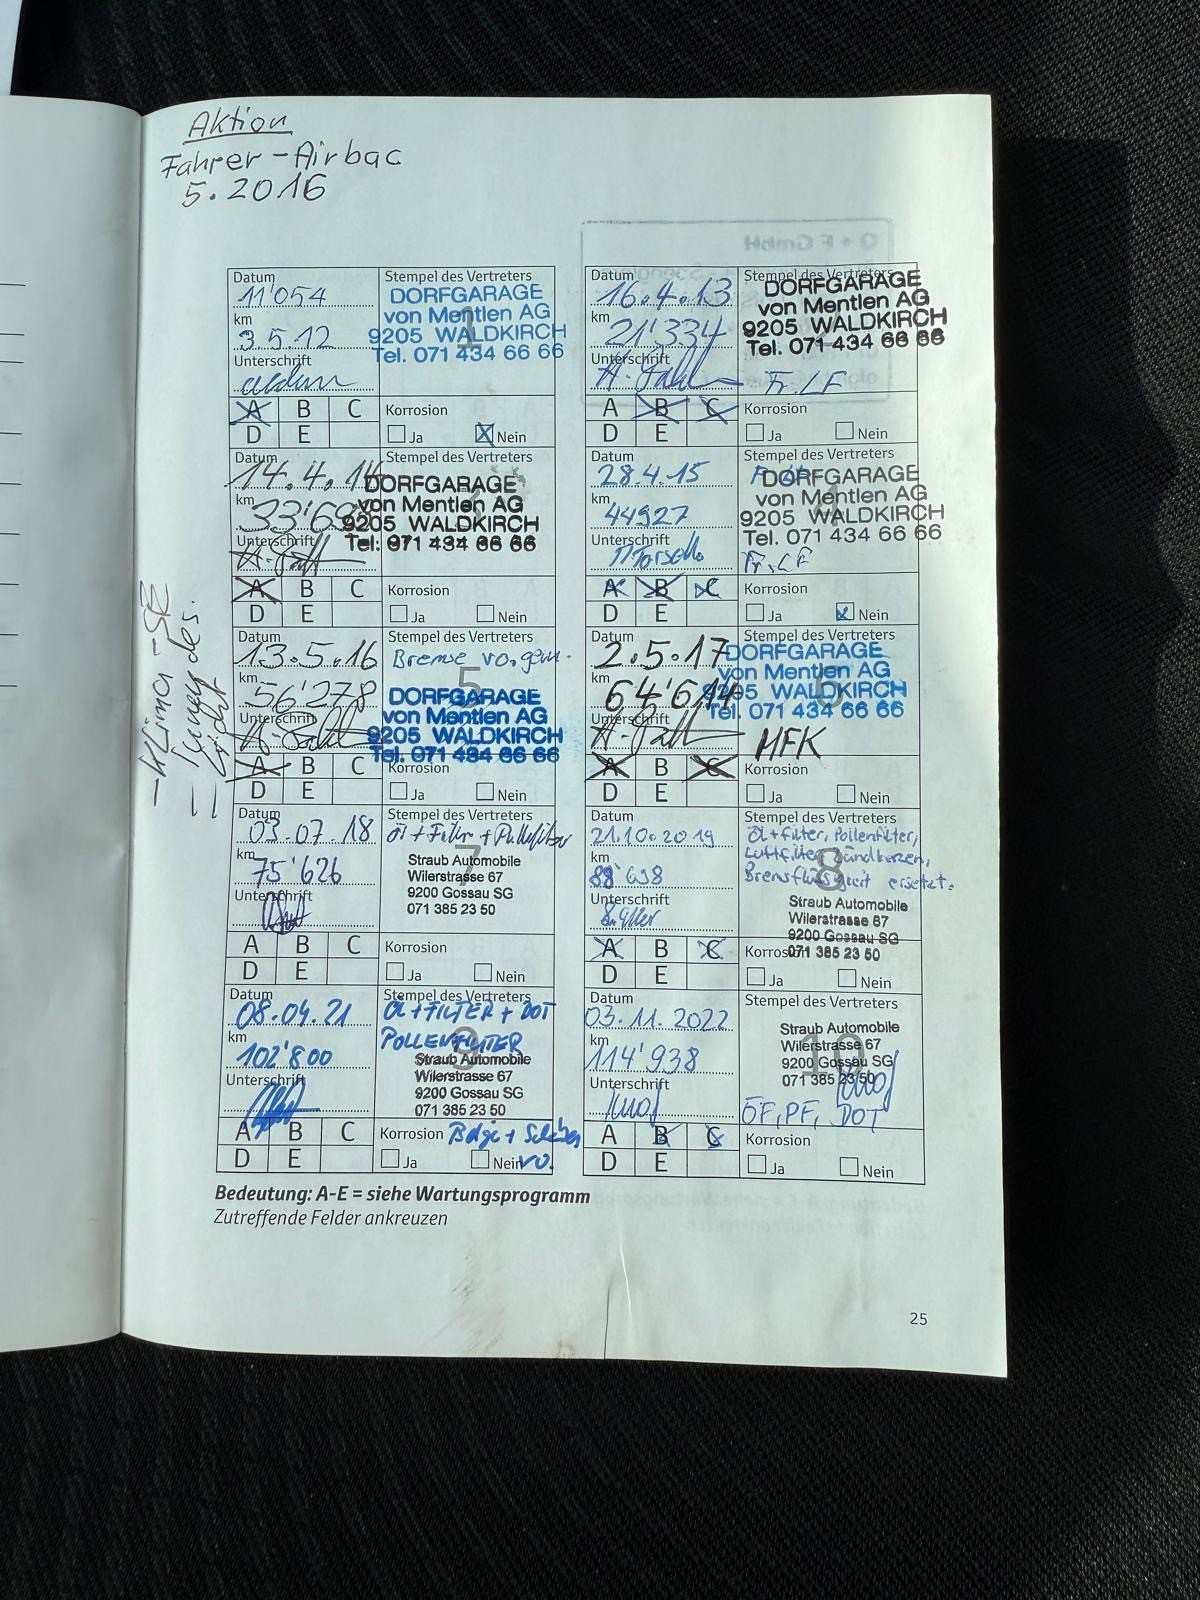 Aktion
Fahrer-Airbac
5.2016
Datum
11'054
km
3.5.12
Unterschrift
Stempel des Vertreters
1
DORFGARAGE
von Mentlen AG
9205 WALDKIRCH
Tel. 071 434 66 66
A B C
D E
Korrosion
Ja Nein
Datum
16.4.13
km
21'334
Unterschrift
Stempel des Vertreters
DORFGARAGE
von Mentlen AG
9205 WALDKIRCH
Tel. 071 434 66 66
Fr. LF
A B C
D E
Korrosion
Ja Nein
Datum
14.4.14
km
Unterschrift
Stempel des Vertreters
DORFGARAGE
von Mentlen AG
9205 WALDKIRCH
Tel. 071 434 66 66
A B C
D E
Korrosion
Ja Nein
Datum
28.4.15
km
44927
Unterschrift
Stempel des Vertreters
4
DORFGARAGE
von Mentlen AG
9205 WALDKIRCH
Tel. 071 434 66 66
Fr. LF
A B C
D E
Korrosion
Ja Nein
-Klima-SR
Datum
13.5.16
km
56'278
Unterschrift
Stempel des Vertreters
Bremse vo. gem.
5
DORFGARAGE
von Mentlen AG
9205 WALDKIRCH
Tel. 071 434 66 66
A B C
D E
Korrosion
Ja Nein
Datum
2.5.17
km
64'614
Unterschrift
Stempel des Vertreters
6
DORFGARAGE
von Mentlen AG
9205 WALDKIRCH
Tel. 071 434 66 66
MFK
A B C
D E
Korrosion
Ja Nein
Datum
03.07.18
km
75'626
Unterschrift
Stempel des Vertreters
Öl + Filter + Pollenfilter
7
Straub Automobile
Wilerstrasse 67
9200 Gossau SG
071 385 23 50
A B C
D E
Korrosion
Ja Nein
Datum
21.10.2019
km
88'698
Unterschrift
Stempel des Vertreters
Öl+filter, Pollenfilter,
Luftfilter, Zündkerzen,
Bremsflüssigkeit ersetzt.
8
Straub Automobile
Wilerstrasse 67
9200 Gossau SG
071 385 23 50
A B C
D E
Korrosion
Ja Nein
Datum
08.04.21
km
102'800
Unterschrift
Stempel des Vertreters
ÖL + FILTER + DOT
POLLENFILTER
9
Straub Automobile
Wilerstrasse 67
9200 Gossau SG
071 385 23 50
A B C
D E
Korrosion Beläge + Scheiben
Ja Nein vo.
Datum
03.11.2022
km
114'938
Unterschrift
Stempel des Vertreters
10
Straub Automobile
Wilerstrasse 67
9200 Gossau SG
071 385 23 50
ÖF, PF, DOT
A B C
D E
Korrosion
Ja Nein
Bedeutung: A-E = siehe Wartungsprogramm
Zutreffende Felder ankreuzen
25